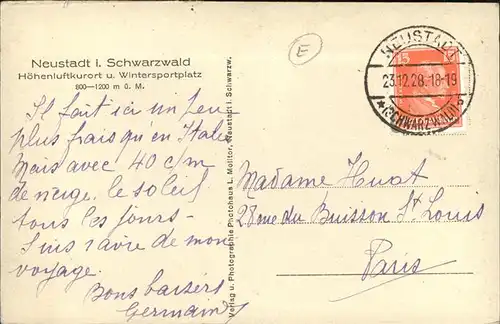 Neustadt i. Schwarzwald
Höhenluftkurort u. Wintersportplatz
800—1200 m ü. M.
Il fait ici un peu
plus frais qu'en Italie
Mais avec 40 c/m
de neige. le soleil
tous les jours -
Suis ravie de mon
voyage.
Bons baisers
Germaine
Verlag u. Photographie Photohaus L. Molitor, Neustadt i. Schwarzw.
E
NEUSTADT
23.12.28.18-19
(SCHWARZWALD)
15
Madame Huat
28 rue du Buisson St Louis
Paris